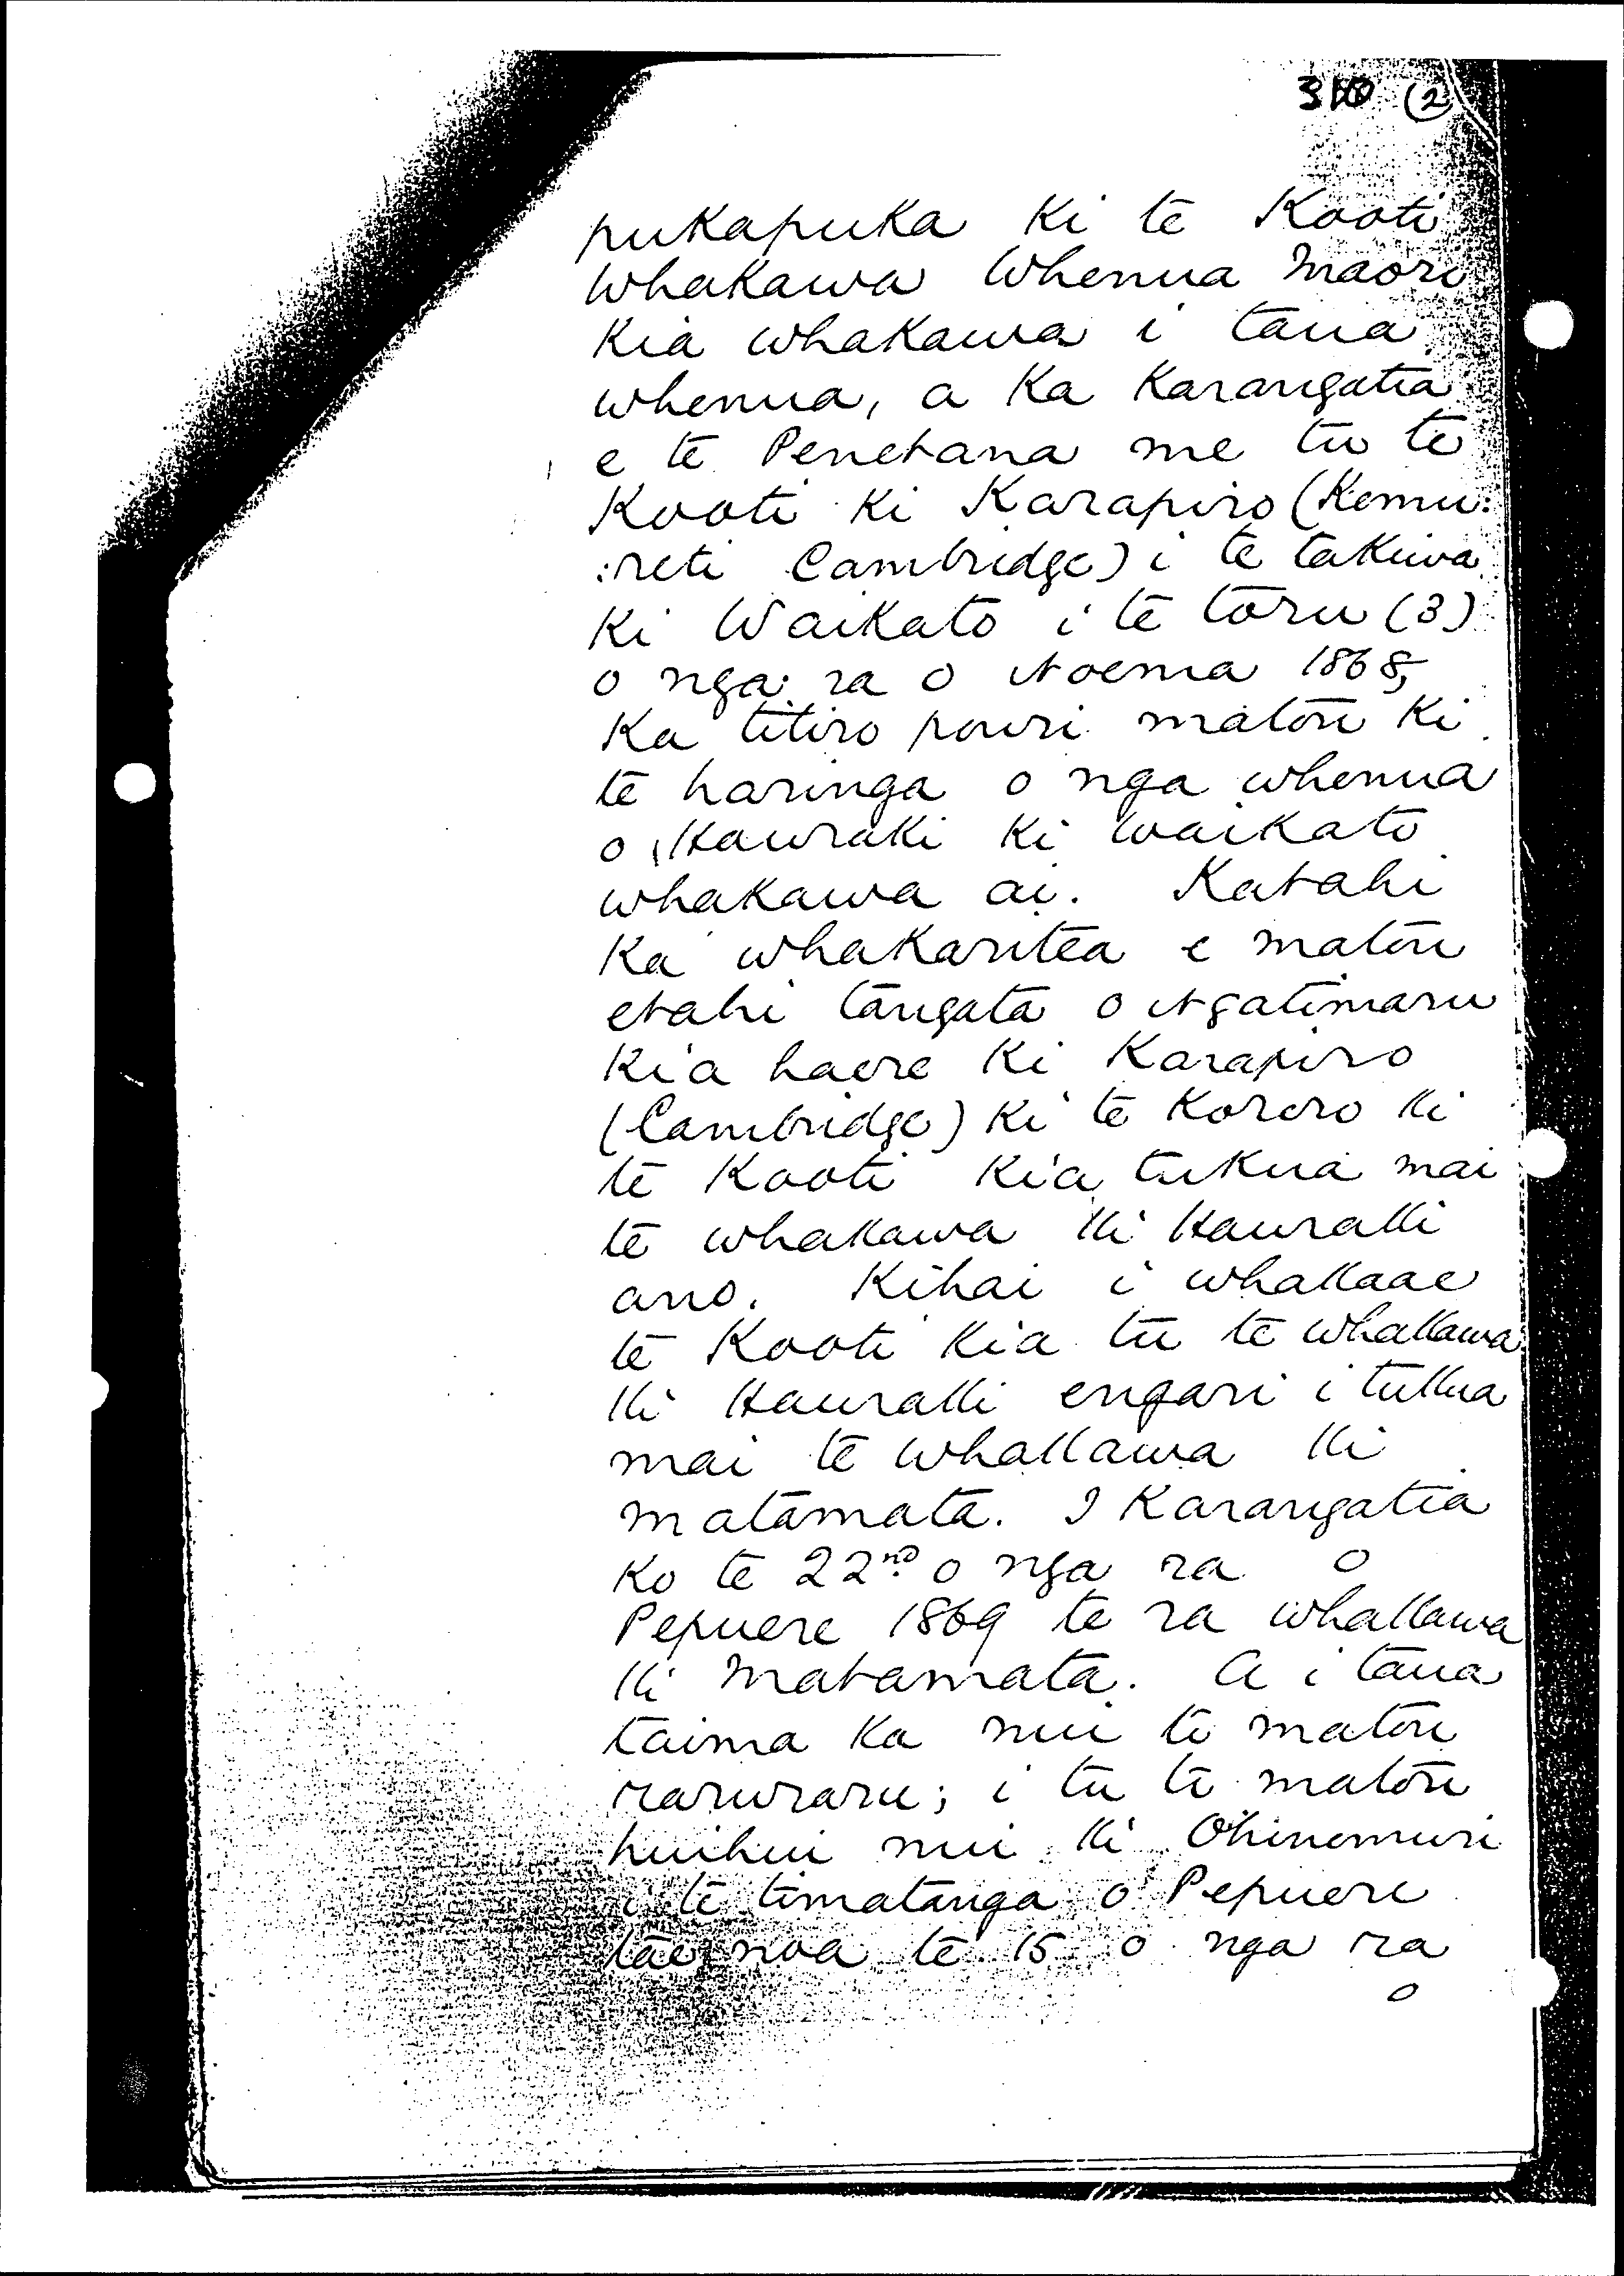 (2)
pukapuka ki te Kooti
Whakawa Whenua Maori
kia whakawa i taua
whenua, a ka karangatia
e te Penetana me tu te
Kooti ki Karapiro (Kemu:
:reti Cambridge) i te takiwa
ki Waikato i te toru (3)
o nga ra o Noema 1868,
Ka titiro pouri matou ki
te haringa o nga whenua
o Hauraki ki Waikato
whakawa ai. Katahi
ka whakaritea e matou
etahi tangata o Ngatimaru
kia haere ki Karapiro
(Cambridge) ki te korero ki
te Kooti kia tukua mai
te whakawa ki Hauraki
ano. Kihai i whakaae
te Kooti kia tu te whakawa
ki Hauraki engari i tukua
mai te whakawa ki
Matamata. I karangatia
ko te 22nd o nga ra o
Pepuere 1869 te ra whakawa
ki Matamata. A i taua
taima ka nui to matou
raruraru; i tu te matou
huihui nui ki Ohinemuri
i te timatanga o Pepuere
tae noa te 15 o nga ra
o